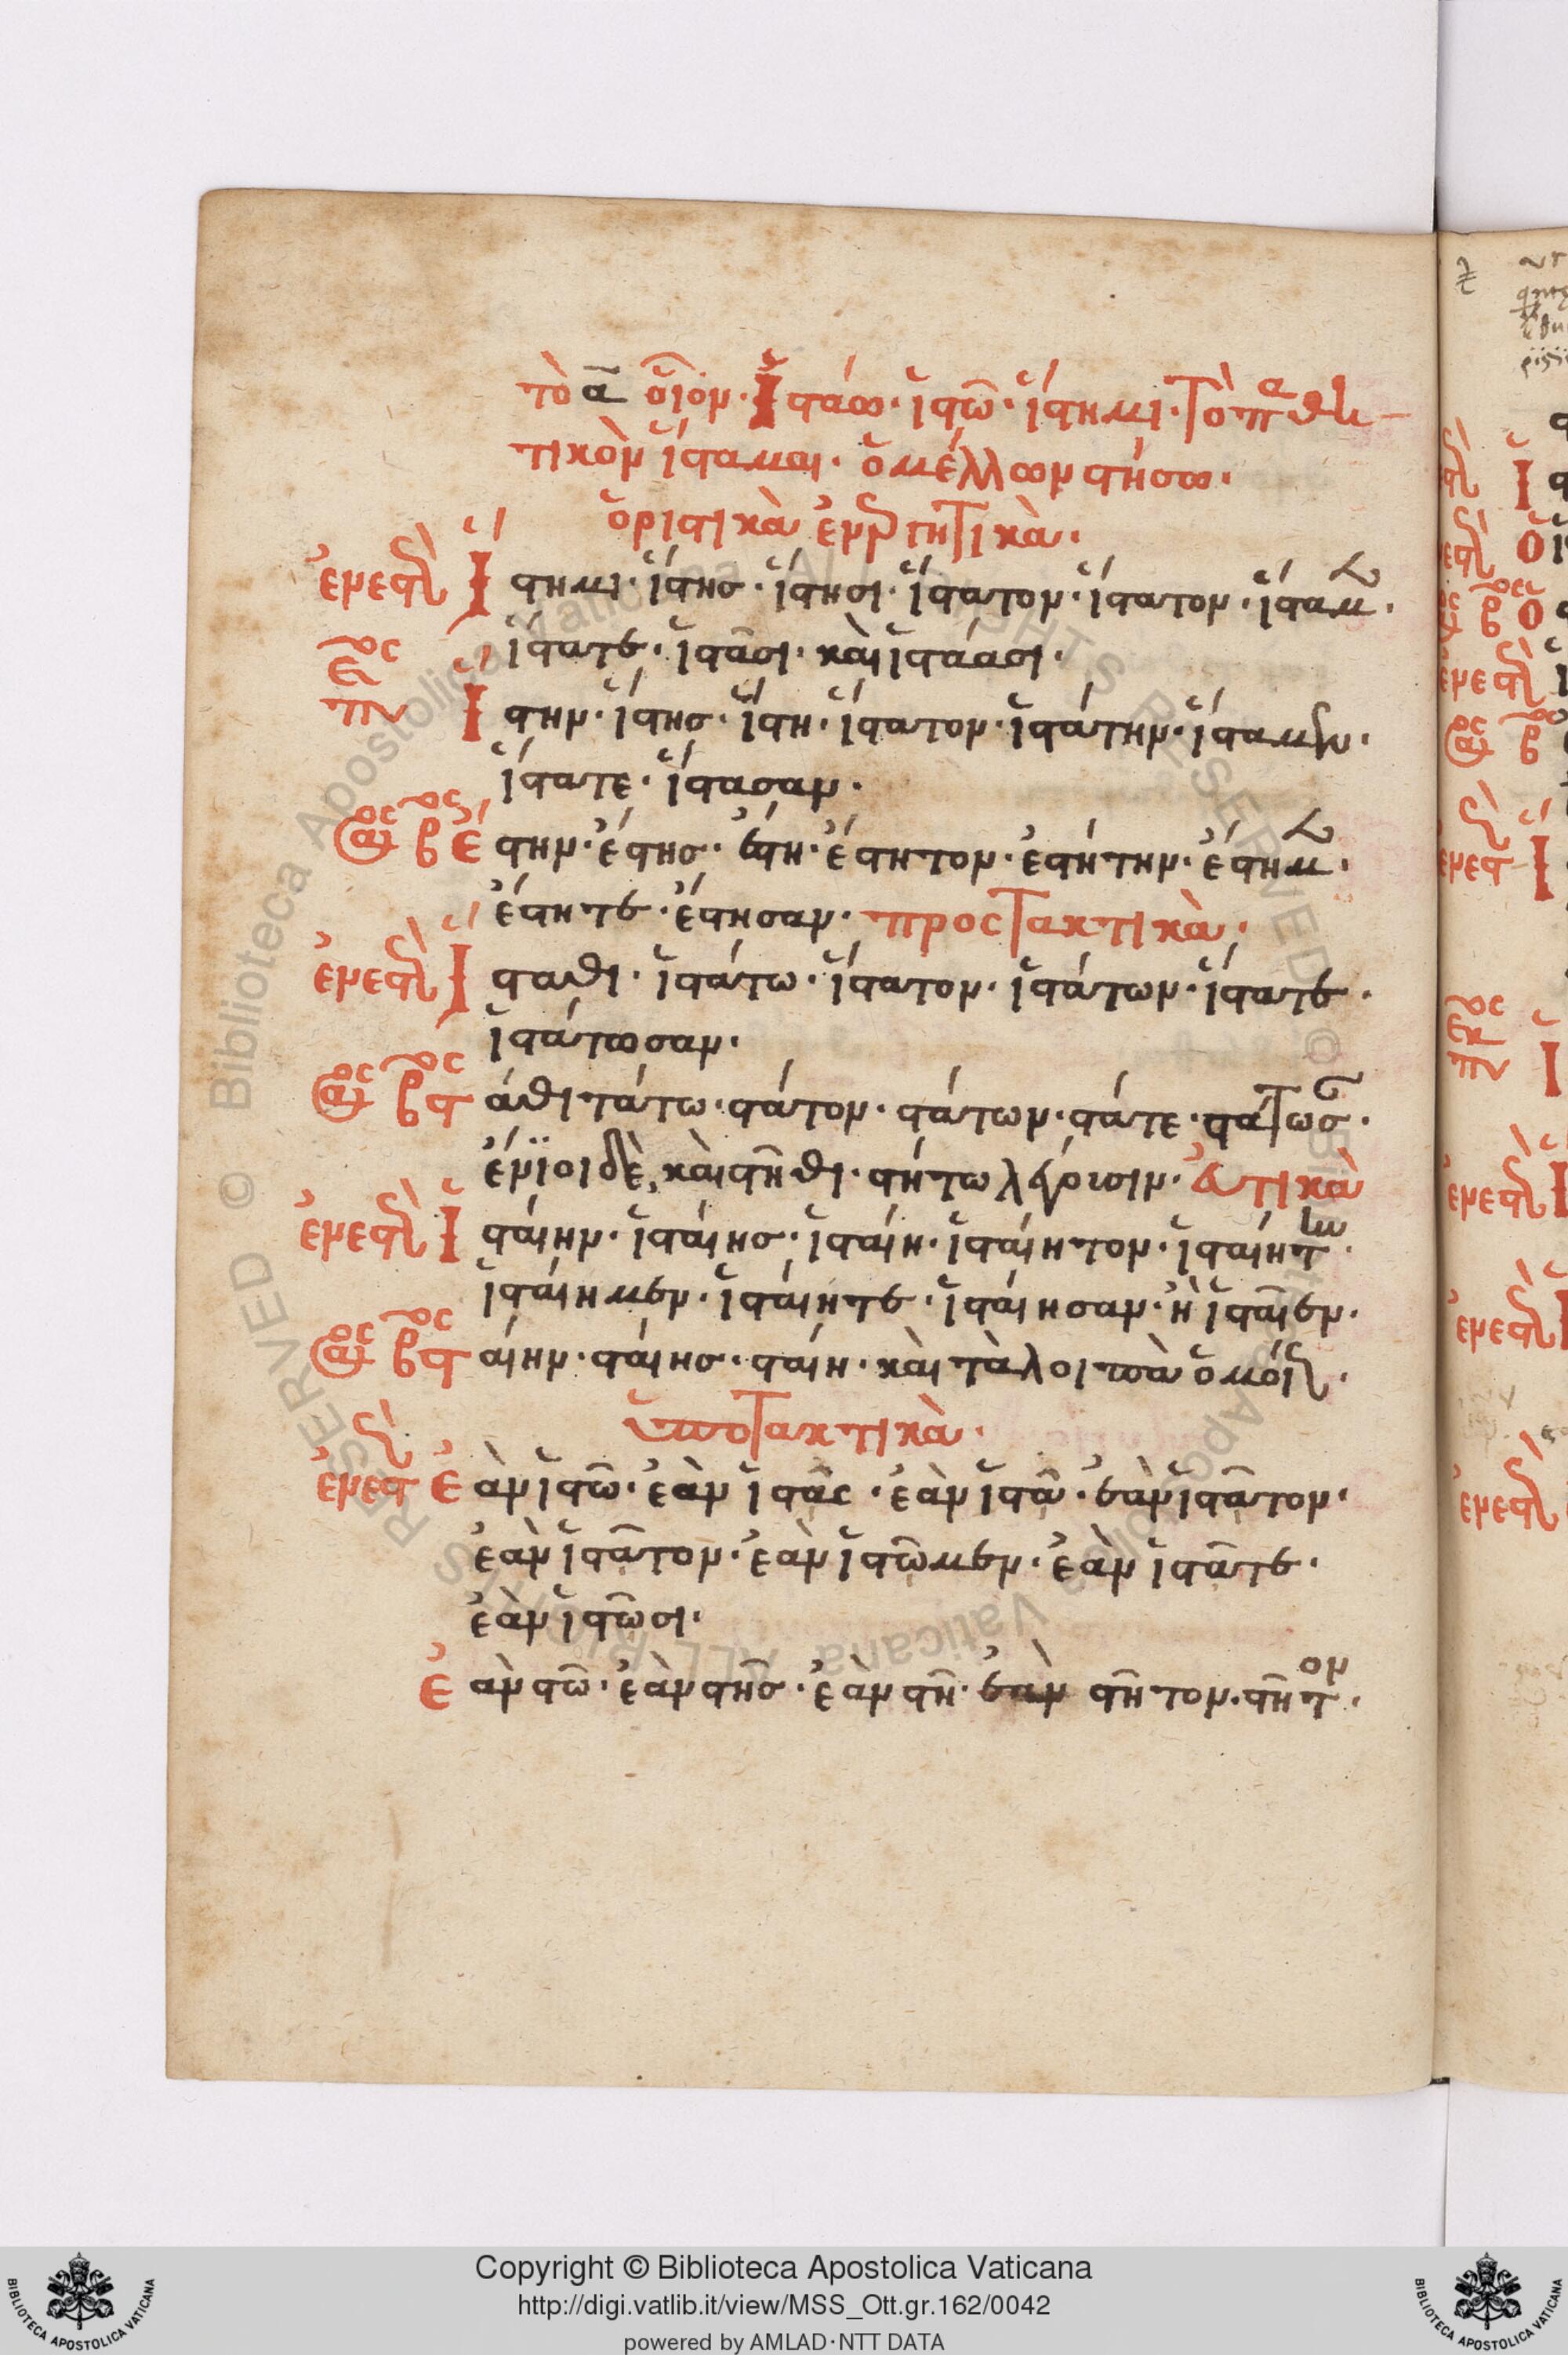 τὸ ᾱ οἷον. ἱστάω. ἱστῶ. ἵστημι. Τὸ παθη-
τικὸν ἵσταμαι. ὁ μέλλων στήσω.
ὁριστικὰ ἐνεργητικά.
ἐνεστὼς Ἵστημι. ἵστης. ἵστησι. ἵστατον. ἵστατον. ἵσταμεν.
ἵστατε. ἱστᾶσι. καὶ ἱστάασι.
Ἵστην. ἵστης. ἵστη. ἵστατον. ἱστάτην. ἵσταμεν.
ἵστατε. ἵστασαν.
ἀος βος Ἔστην. ἔστης. ἔστη. ἔστητον. ἐστήτην. ἔστημεν.
ἔστητε. ἔστησαν. προστακτικὰ.
ἐνεστὼς Ἵσταθι. ἱστάτω. ἵστατον. ἱστάτων. ἵστατε.
ἱστάτωσαν.
ἀος βος στάθι τάτω. στάτον. στάτων. στάτε. στάτωσαν.
ἔνϊοι δὲ, καὶ στῆθι. στήτω λέγουσιν. Εὐκτικὰ
ἐνεστὼς Ἱσταίην. ἱσταίης. ἱσταίη. ἱσταίητον. ἱσταιήτην.
ἱσταίημεν. ἱσταίητε. ἱσταίησαν. ἢ ἱσταῖεν.
ἀος βος σταίην. σταίης. σταίη. καὶ τὰ λοιπὰ ὁμοίως.
ὑποτακτικὰ.
ἐνεστὼς Ἐὰν ἱστῶ. ἐὰν ἱστᾶς. ἐὰν ἱστᾶ. ἐὰν ἱστᾶτον.
ἐὰν ἱστᾶτον. ἐὰν ἱστῶμεν. ἐὰν ἱστᾶτε.
ἐὰν ἱστῶσι.
Ἐὰν στῶ. ἐὰν στῆς. ἐὰν στῆ. ἐὰν στῆτον. στῆτον.
Copyright © Biblioteca Apostolica Vaticana
http://digi.vatlib.it/view/MSS_Ott.gr.162/0042
powered by AMLAD·NTT DATA